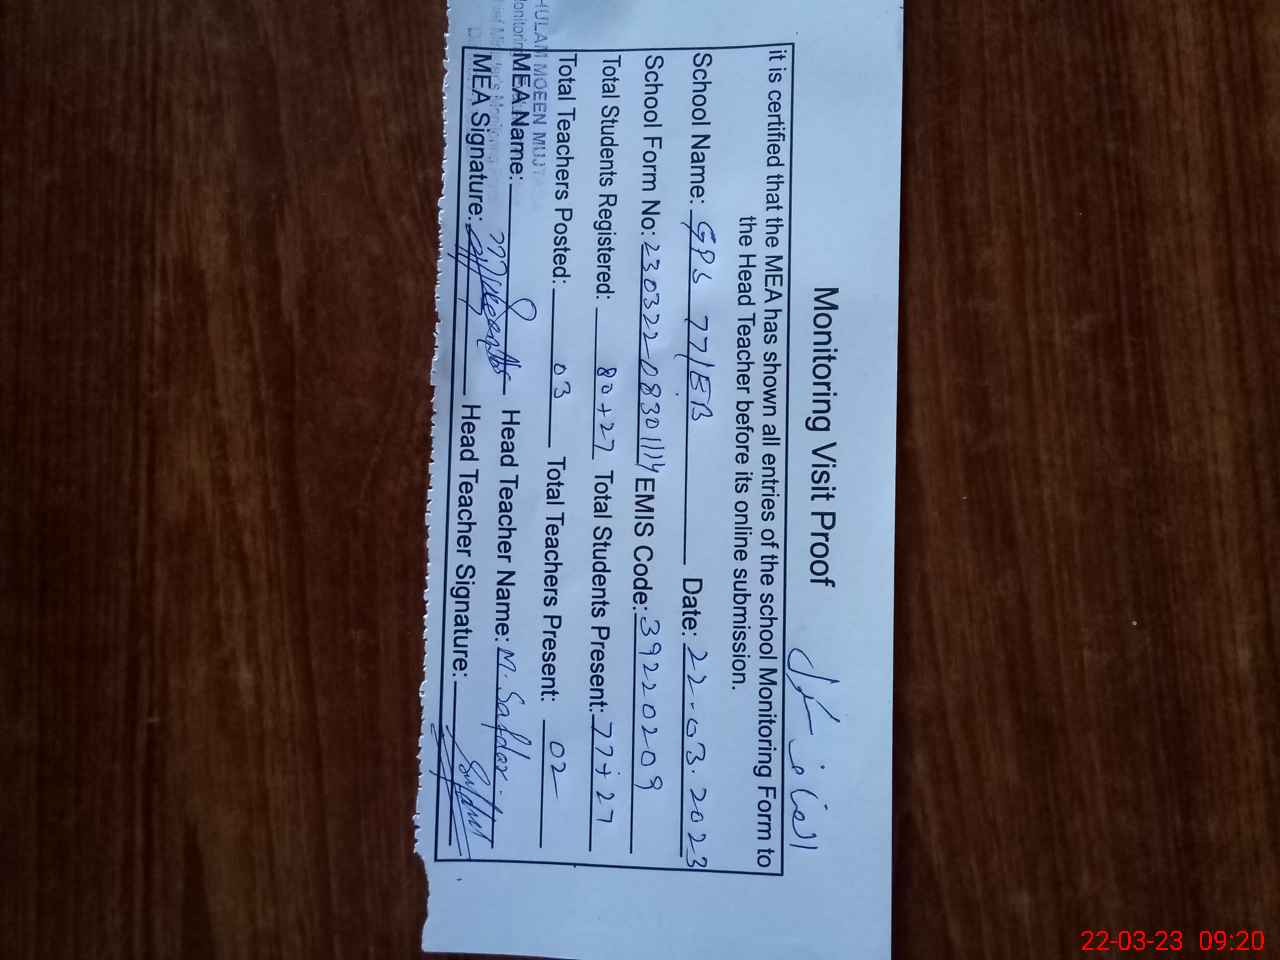 Monitoring Visit Proof
it is certified that the MEA has shown all entries of the school Monitoring Form to
the Head Teacher before its online submission.
School Name: GPS 77/EB Date: 22-03-2023
School Form No: 230322083011114 EMIS Code: 39220209
Total Students Registered: 80+27 Total Students Present: 77+27
Total Teachers Posted: 03 Total Teachers Present: 02
HULAM MOEEN MUJT
MEA Name: Head Teacher Name: M. Safdar
MEA Signature: Head Teacher Signature:
22-03-23 09:20